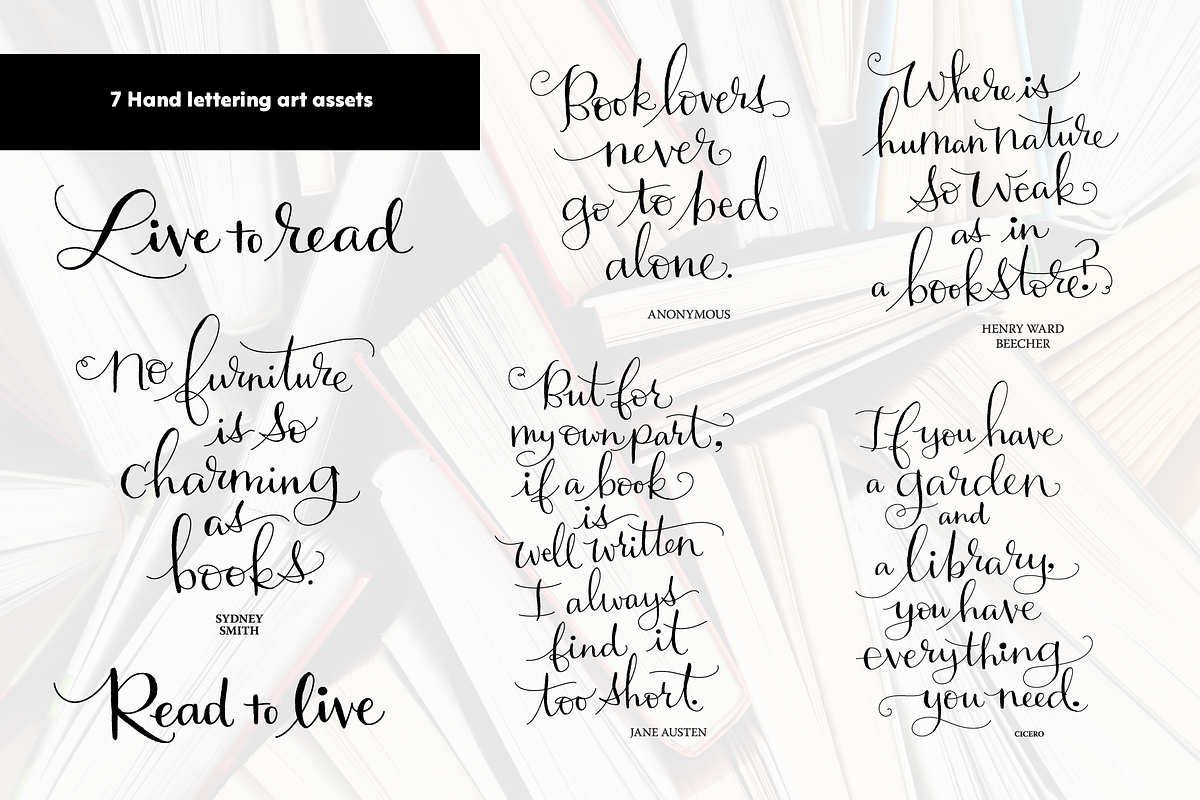 7 Hand lettering art assets
Live to read
No furniture
is so
charming
as
books.
SYDNEY
SMITH
Read to live
Book lovers
never
go to bed
alone.
ANONYMOUS
But for
my own part,
if a book
is
well written
I always
find it
too short.
JANE AUSTEN
Where is
human nature
so weak
as in
a bookstore?
HENRY WARD
BEECHER
If you have
a garden
and
a library,
you have
everything
you need.
CICERO